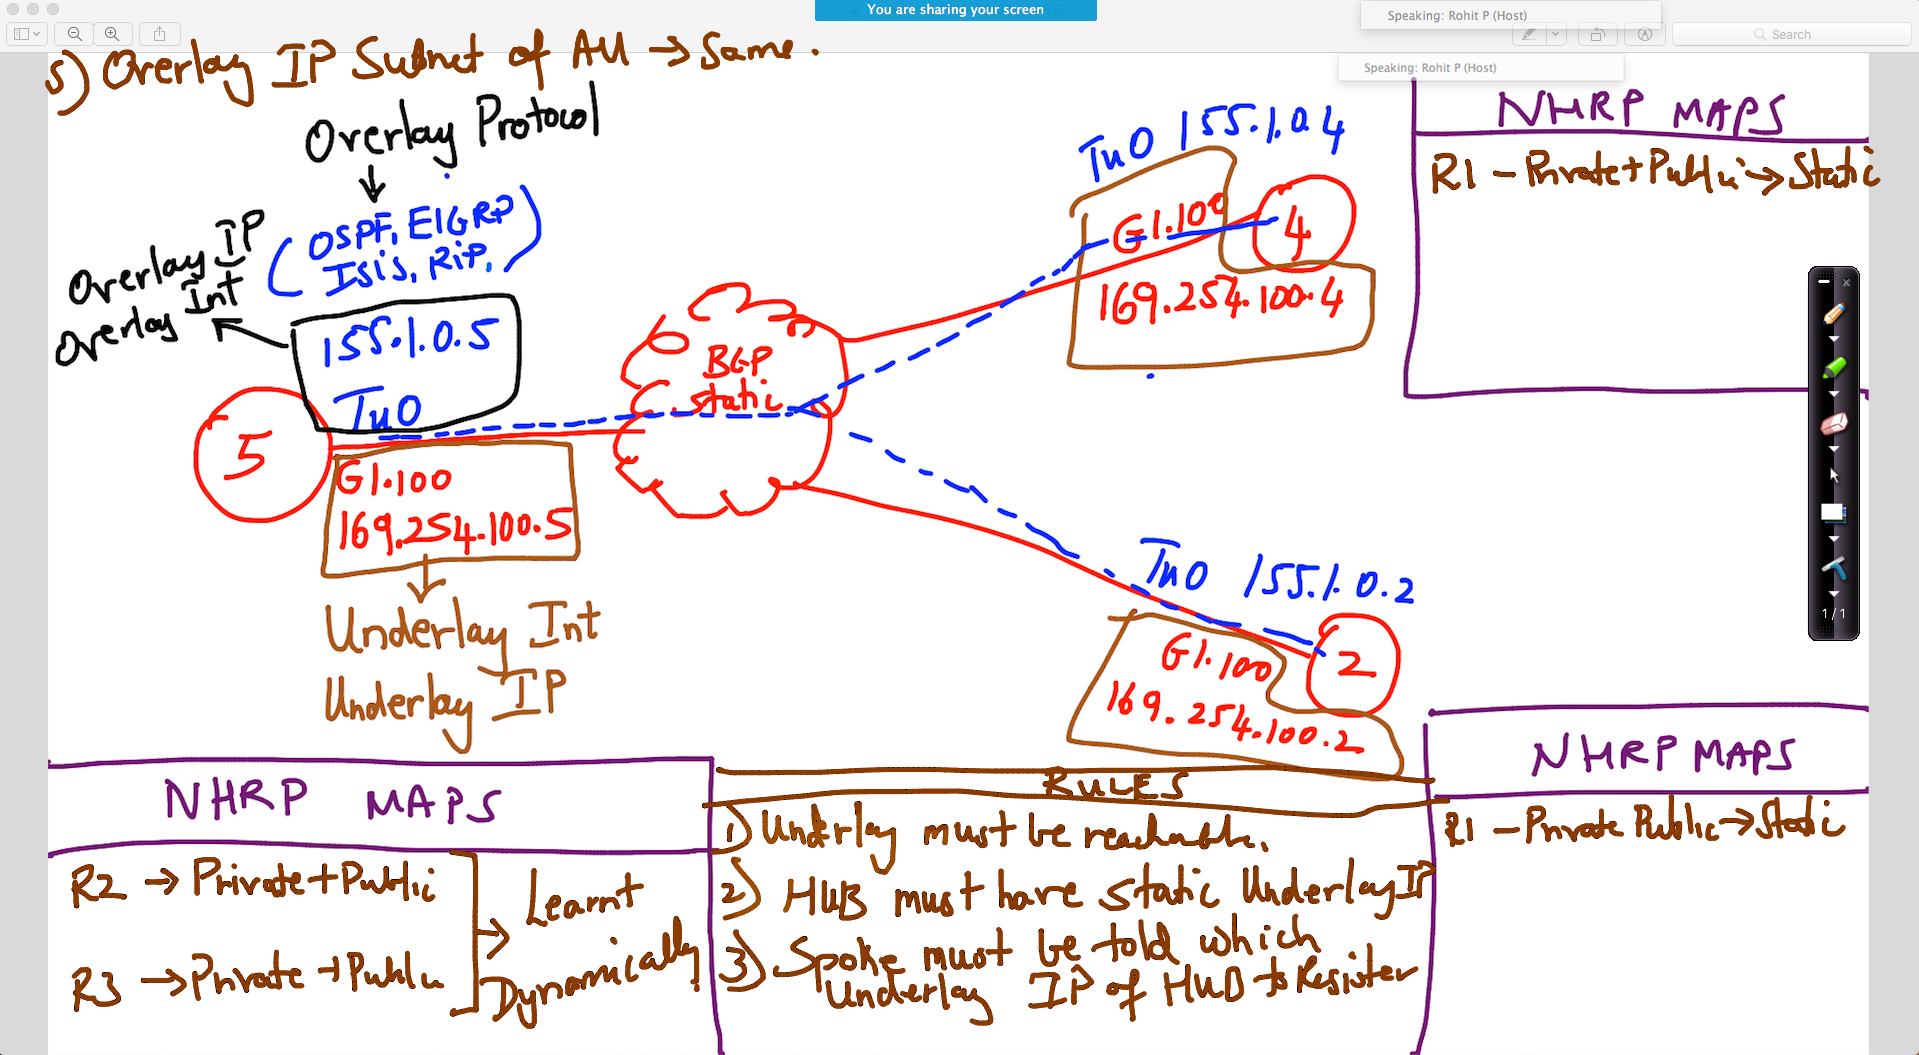 You are sharing your screen
Speaking: Rohit P (Host)
Search
Speaking: Rohit P (Host)
5) Overlay IP Subnet of All → Same.
Overlay Protocol
(OSPF, EIGRP
ISIS, RIP,)
Overlay IP
Overlay Int
155.1.0.5
Tu0
5
G1.100
169.254.100.5
Underlay Int
Underlay IP
BGP
static
Tu0 155.1.0.4
G1.100
4
169.254.100.4
Tu0 155.1.0.2
G1.100
2
169.254.100.2
NHRP MAPS
R1 - Private+Public → Static
1/1
NHRP MAPS
R1 - Private Public → Static
NHRP MAPS
R2 → Private+Public
R3 → Private+Public
Learnt
Dynamically
RULES
1) Underlay must be reachable.
2) HUB must have static Underlay IP
3) Spoke must be told which
Underlay IP of HUB to Resister